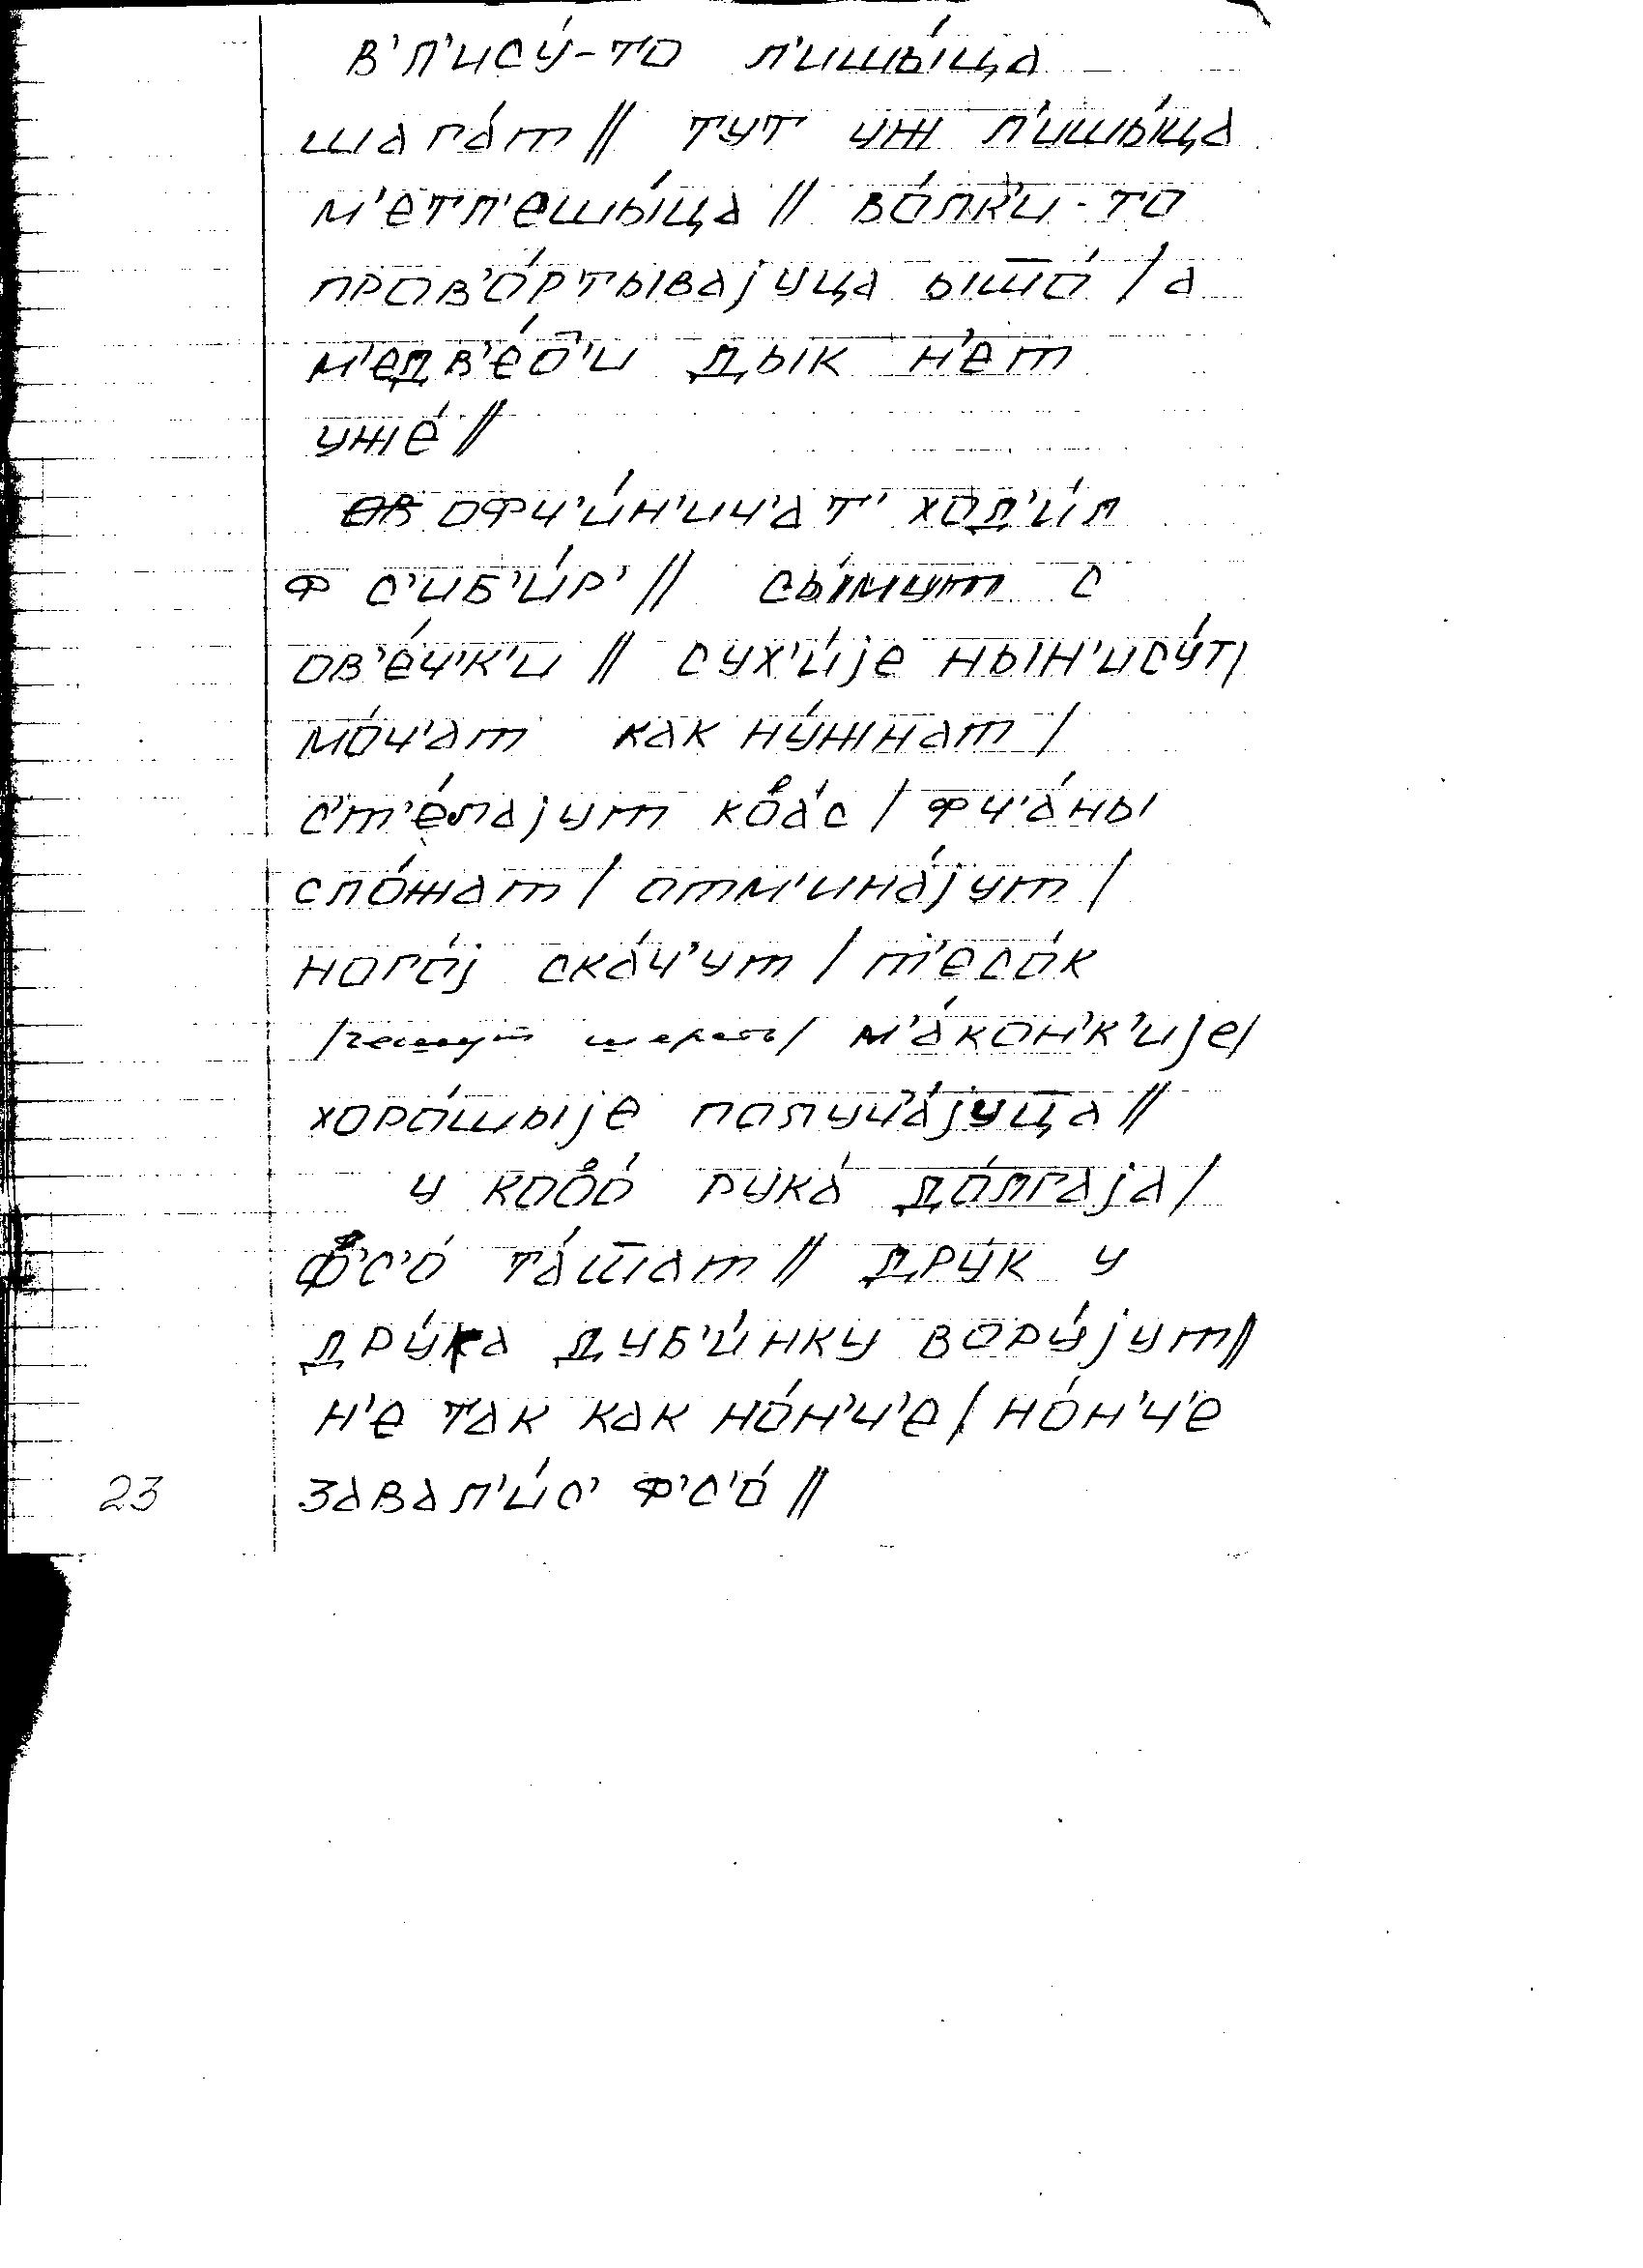 в'л'ису́-то л'ишы́ца
шага́т // тут уж л'ишы́ца
м'етл'ешы́ца // во́лк'и-то
пров'о́ртывајуца ыш̅о́ / а
м'едв'е́д'и дык н'ет
уже́ //
офч'и́н'ич'ат' ход'и́л
ф с'иб'и́р' // сы́мут с
ов'е́ч'к'и // сух'и́је нын'ису́т /
мо́ч'ат как ну́жнат /
с'т'е́лајут кв̊а́с / фч'а́ны
сло́жат / отм'ина́јут /
ного́ј ска́ч'ут / т'есо́к
/чешут шерсть/ м'а́кон'к'ије /
хоро́шыје получ'а́јуца //
у ков̊о́ рука́ до́лгаја /
ф'с'о́ та́ш̅ат // друк у
дру́га дуб'и́нку вору́јут //
н'е так как но́н'ч'е / но́н'ч'е
23 завал'и́с' ф'с'о́ //